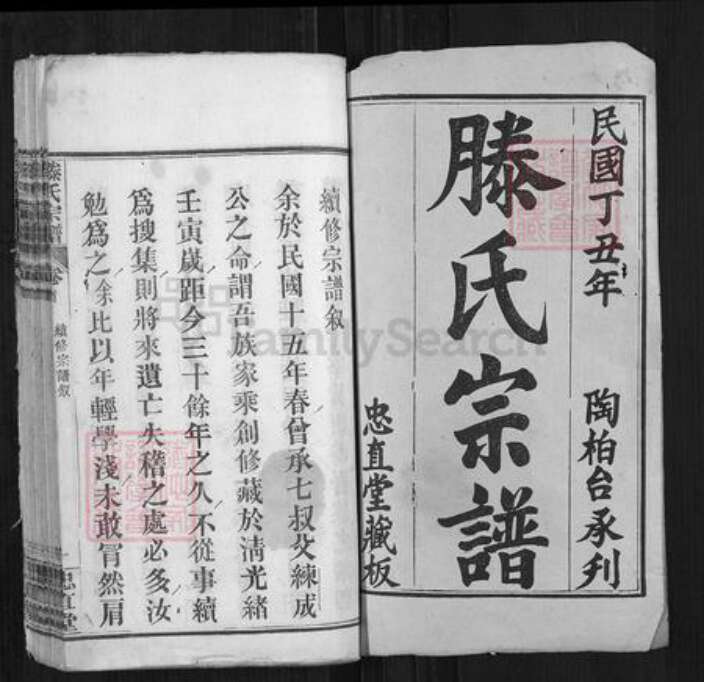 民國丁丑年
陶柏台承刋
滕氏宗譜
忠直堂藏板
續修宗譜叙
余於民國十五年春曾承七叔父練成
公之命謂吾族家乘創修藏於淸光緒
壬寅歲距今三十餘年之久不從事續
爲搜集則將來遺亡失稽之處必多汝
勉爲之余比以年輕學淺未敢冐然肩
滕氏宗譜
卷
續修宗譜叙
一
忠直堂
FamilySearch